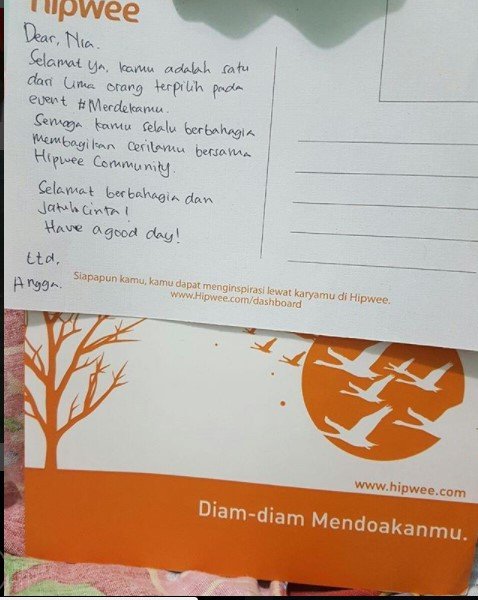 Hipwee
Dear, Nia.
Selamat ya, kamu adalah satu
dari lima orang terpilih pada
event #Merdekamu.
Semoga kamu selalu berbahagia
membagikan ceritamu bersama
Hipwee Community.
Selamat berbahagia dan
jatuh cinta!
Have a good day!
ttd,
Angga.
Siapapun kamu, kamu dapat menginspirasi lewat karyamu di Hipwee.
www.Hipwee.com/dashboard
www.hipwee.com
Diam-diam Mendoakanmu.